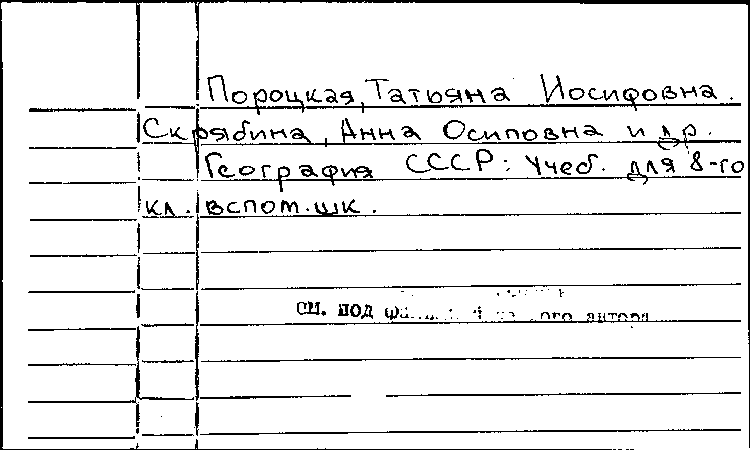 Пороцкая, Татьяна Иосифовна.
Скрябина, Анна Осиповна и др.
География СССР: Учеб. для 8-го
кл. вспом. шк.
см. под ого автора